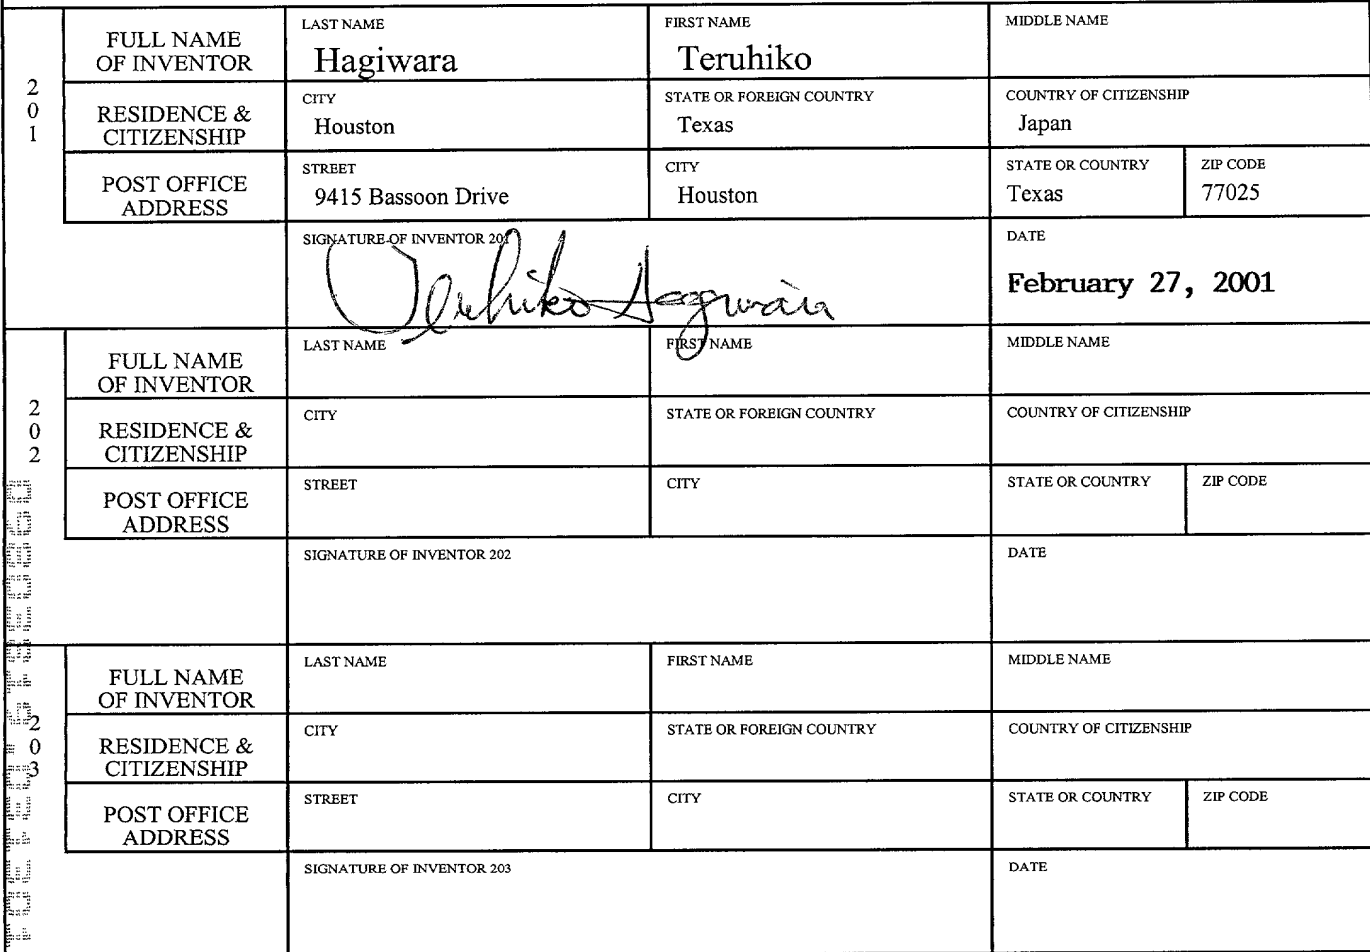 FULL NAME OF INVENTOR
LAST NAME
Hagiwara
FIRST NAME
Teruhiko
MIDDLE NAME
201
RESIDENCE & CITIZENSHIP
CITY
Houston
STATE OR FOREIGN COUNTRY
Texas
COUNTRY OF CITIZENSHIP
Japan
POST OFFICE ADDRESS
STREET
9415 Bassoon Drive
CITY
Houston
STATE OR COUNTRY
Texas
ZIP CODE
77025
SIGNATURE OF INVENTOR 201
Teruhiko Hagiwara
DATE
February 27, 2001
FULL NAME OF INVENTOR
LAST NAME
FIRST NAME
MIDDLE NAME
202
RESIDENCE & CITIZENSHIP
CITY
STATE OR FOREIGN COUNTRY
COUNTRY OF CITIZENSHIP
POST OFFICE ADDRESS
STREET
CITY
STATE OR COUNTRY
ZIP CODE
SIGNATURE OF INVENTOR 202
DATE
FULL NAME OF INVENTOR
LAST NAME
FIRST NAME
MIDDLE NAME
203
RESIDENCE & CITIZENSHIP
CITY
STATE OR FOREIGN COUNTRY
COUNTRY OF CITIZENSHIP
POST OFFICE ADDRESS
STREET
CITY
STATE OR COUNTRY
ZIP CODE
SIGNATURE OF INVENTOR 203
DATE